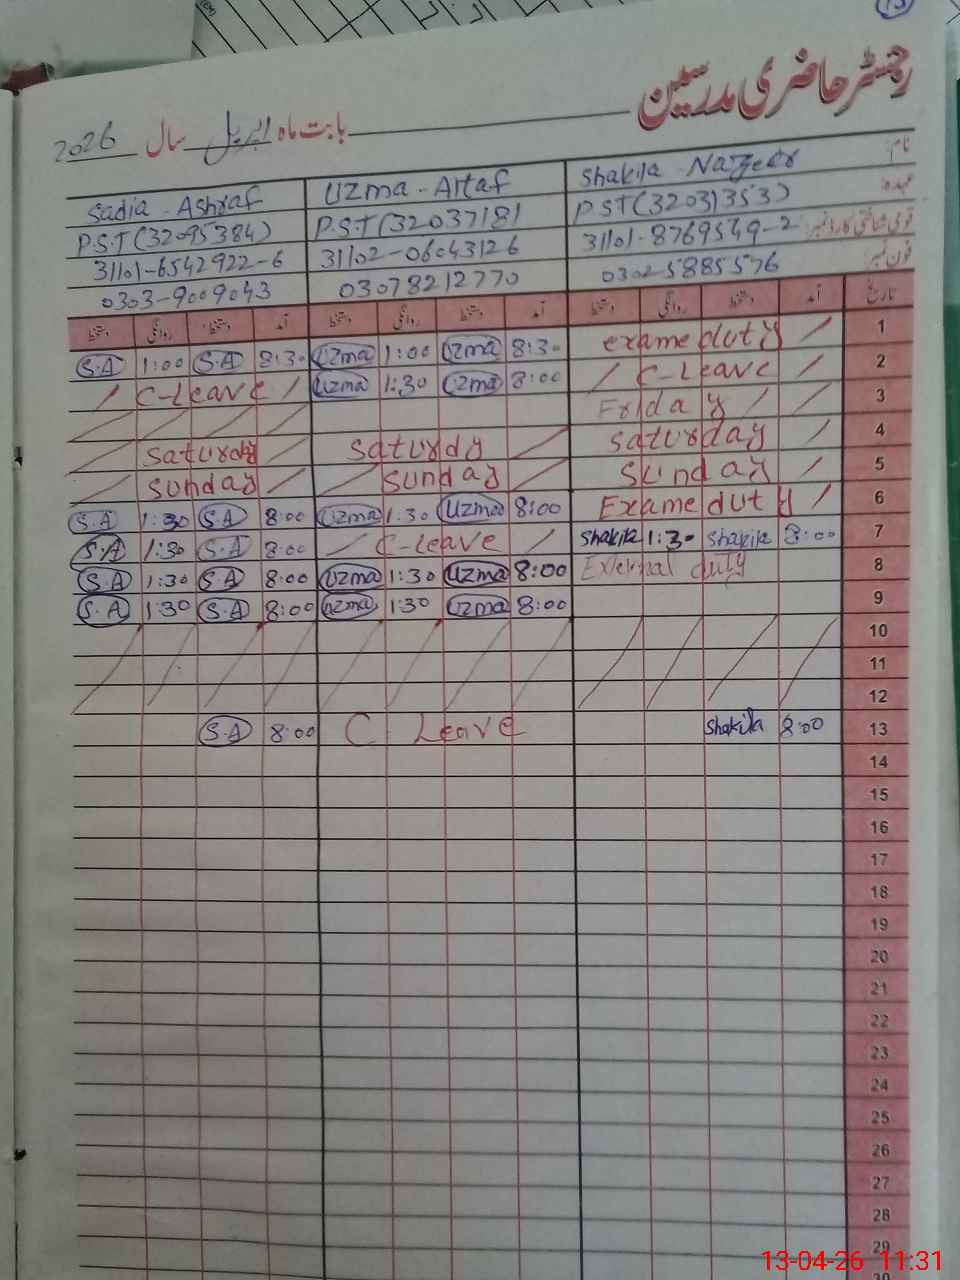 13
رجسٹر حاضری مدرسین
بابت ماہ اپریل سال 2026
نام: Shakila Nazeer Uzma - Altaf Sadia - Ashraf
عہدہ: P.S.T (32031353) P.S.T (32037181) P.S.T (32095384)
قومی شناختی کارڈ نمبر: 31101-8769549-2 31102-06043126 31101-6542922-6
فون نمبر: 03025885576 03078212770 0303-9009043
تاریخ آمد دستخط روانگی دستخط آمد دستخط روانگی دستخط آمد دستخط روانگی دستخط
S.A 1:00 S.A 8:30 Uzma 1:00 Uzma 8:30 exame duty / 1
/ C-Leave / Uzma 1:30 Uzma 8:00 / C-Leave / 2
Friday / / 3
/ Saturday / Saturdy / Saturday / 4
/ Sunday / / Sunday / Sunday / 5
S.A 1:30 S.A 8:00 Uzma 1:30 Uzma 8:00 Exame duty / 6
S.A 1:30 S.A 8:00 / C-Leave / Shakila 1:30 Shakila 8:00 7
S.A 1:30 S.A 8:00 Uzma 1:30 Uzma 8:00 External duty 8
S.A 1:30 S.A 8:00 Uzma 1:30 Uzma 8:00 9
10
11
12
S.A 8:00 C Leave Shakila 8:00 13
14
15
16
17
18
19
20
21
22
23
24
25
26
27
28
29
13-04-26 11:31